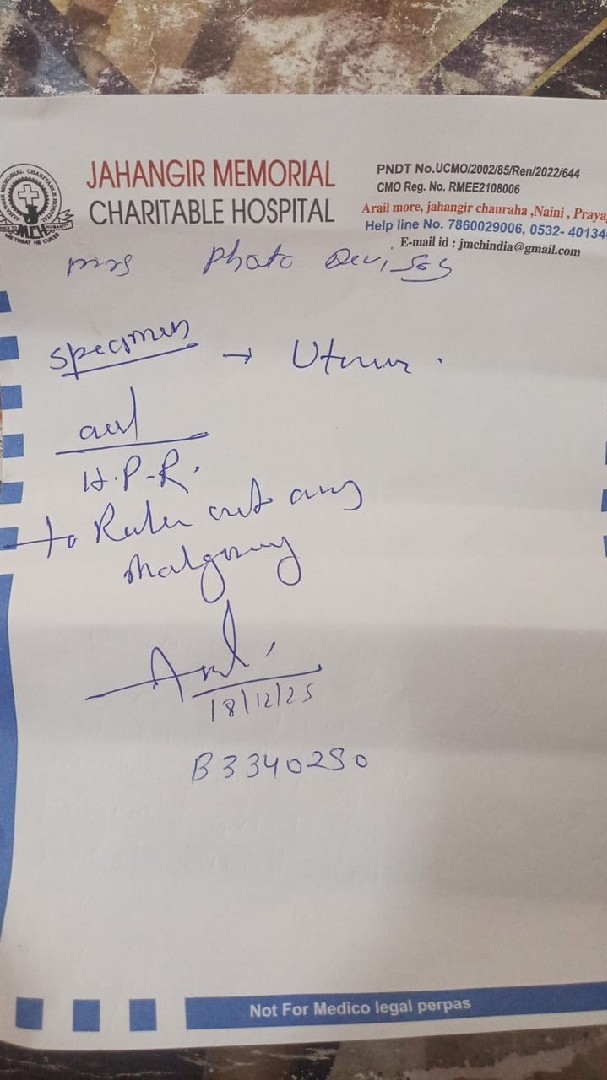 JAHANGIR MEMORIAL
CHARITABLE HOSPITAL
PNDT No.UCMO/2002/85/Ren/2022/644
CMO Reg. No. RMEE2108006
Arail more, jahangir chauraha ,Naini , Praya
Help line No. 7860029006, 0532- 40134
E-mail id : jmchindia@gmail.com
mrs Photo Devi,
specimen → Uterus.
H.P.R.
to Rule out any
malignancy
18/12/25
B3340280
Not For Medico legal perpas